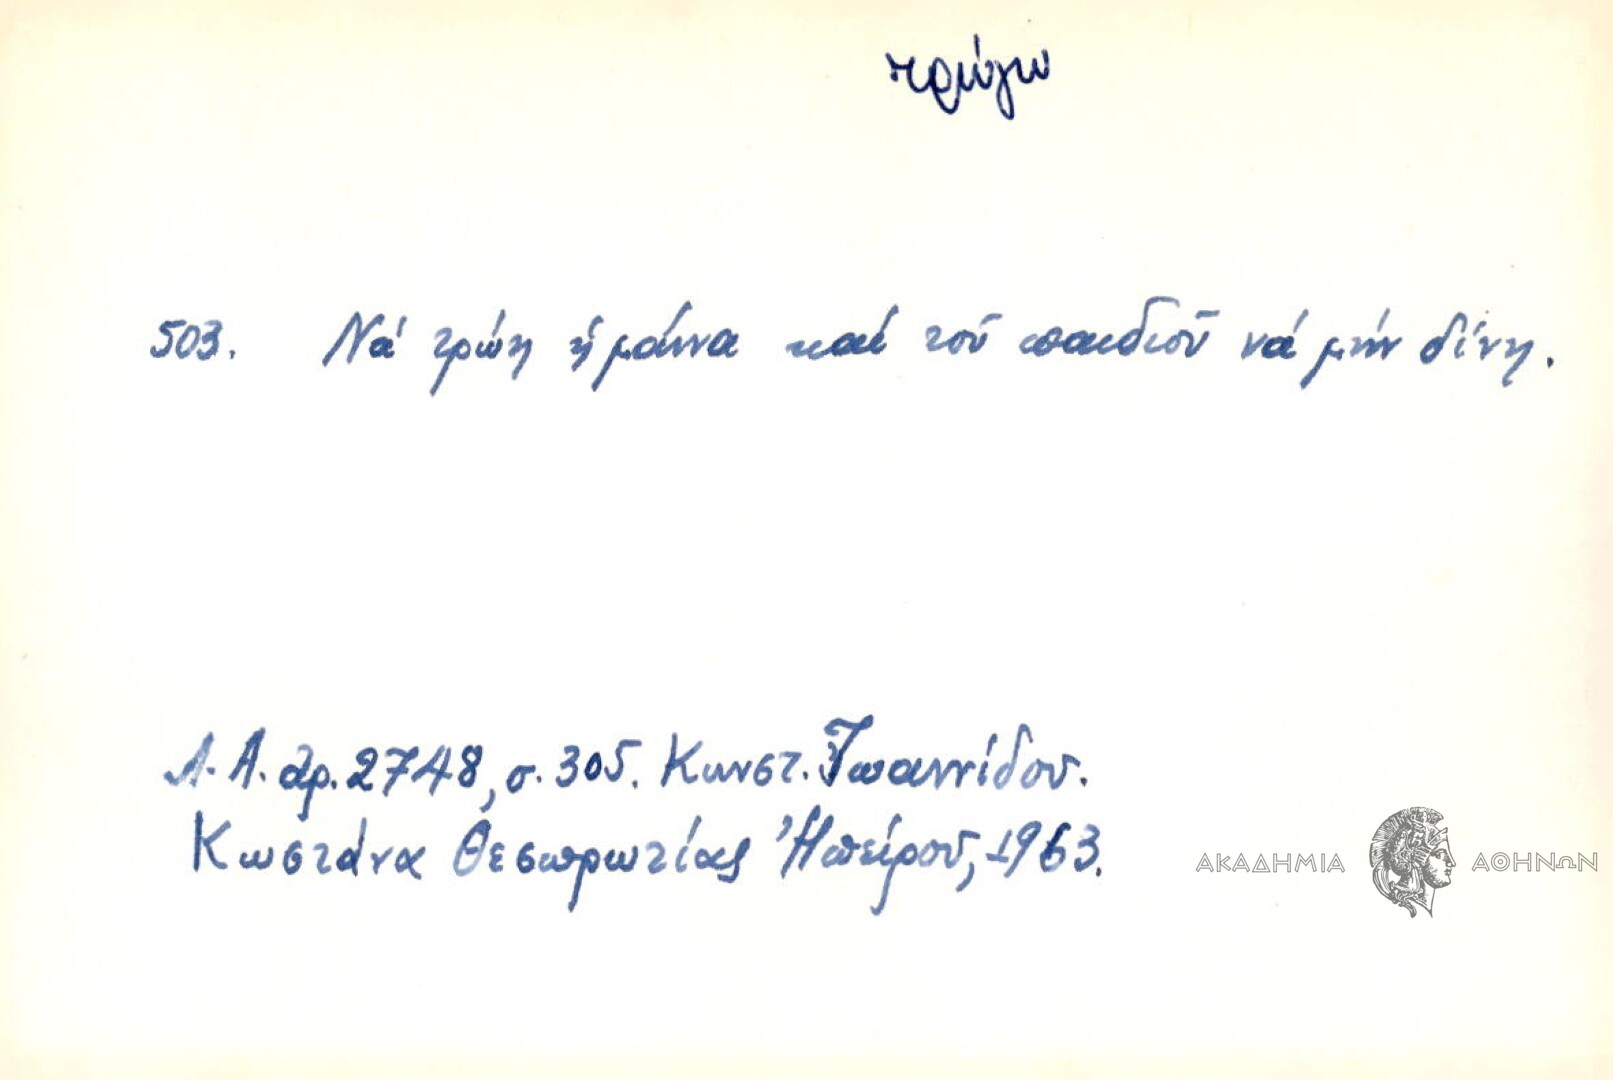 τρώγω
503. Νά τρώη ἡ μάννα καί τοῦ παιδιοῦ νά μήν δίνη.
Λ.Α. ἀρ. 2748, σ. 305. Κωνστ. Ἰωαννίδου.
Κωστάνα Θεσπρωτίας Ἠπείρου, 1963.
ΑΚΑΔΗΜΙΑ ΑΘΗΝΩΝ